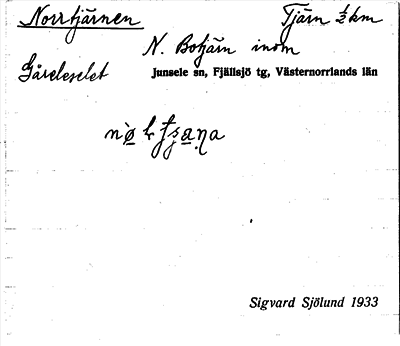 Norrtjärnen Tjärn ½ km
N. Botjärn inom
Gåreleselet Junsele sn, Fjällsjö tg, Västernorrlands län
Sigvard Sjölund 1933